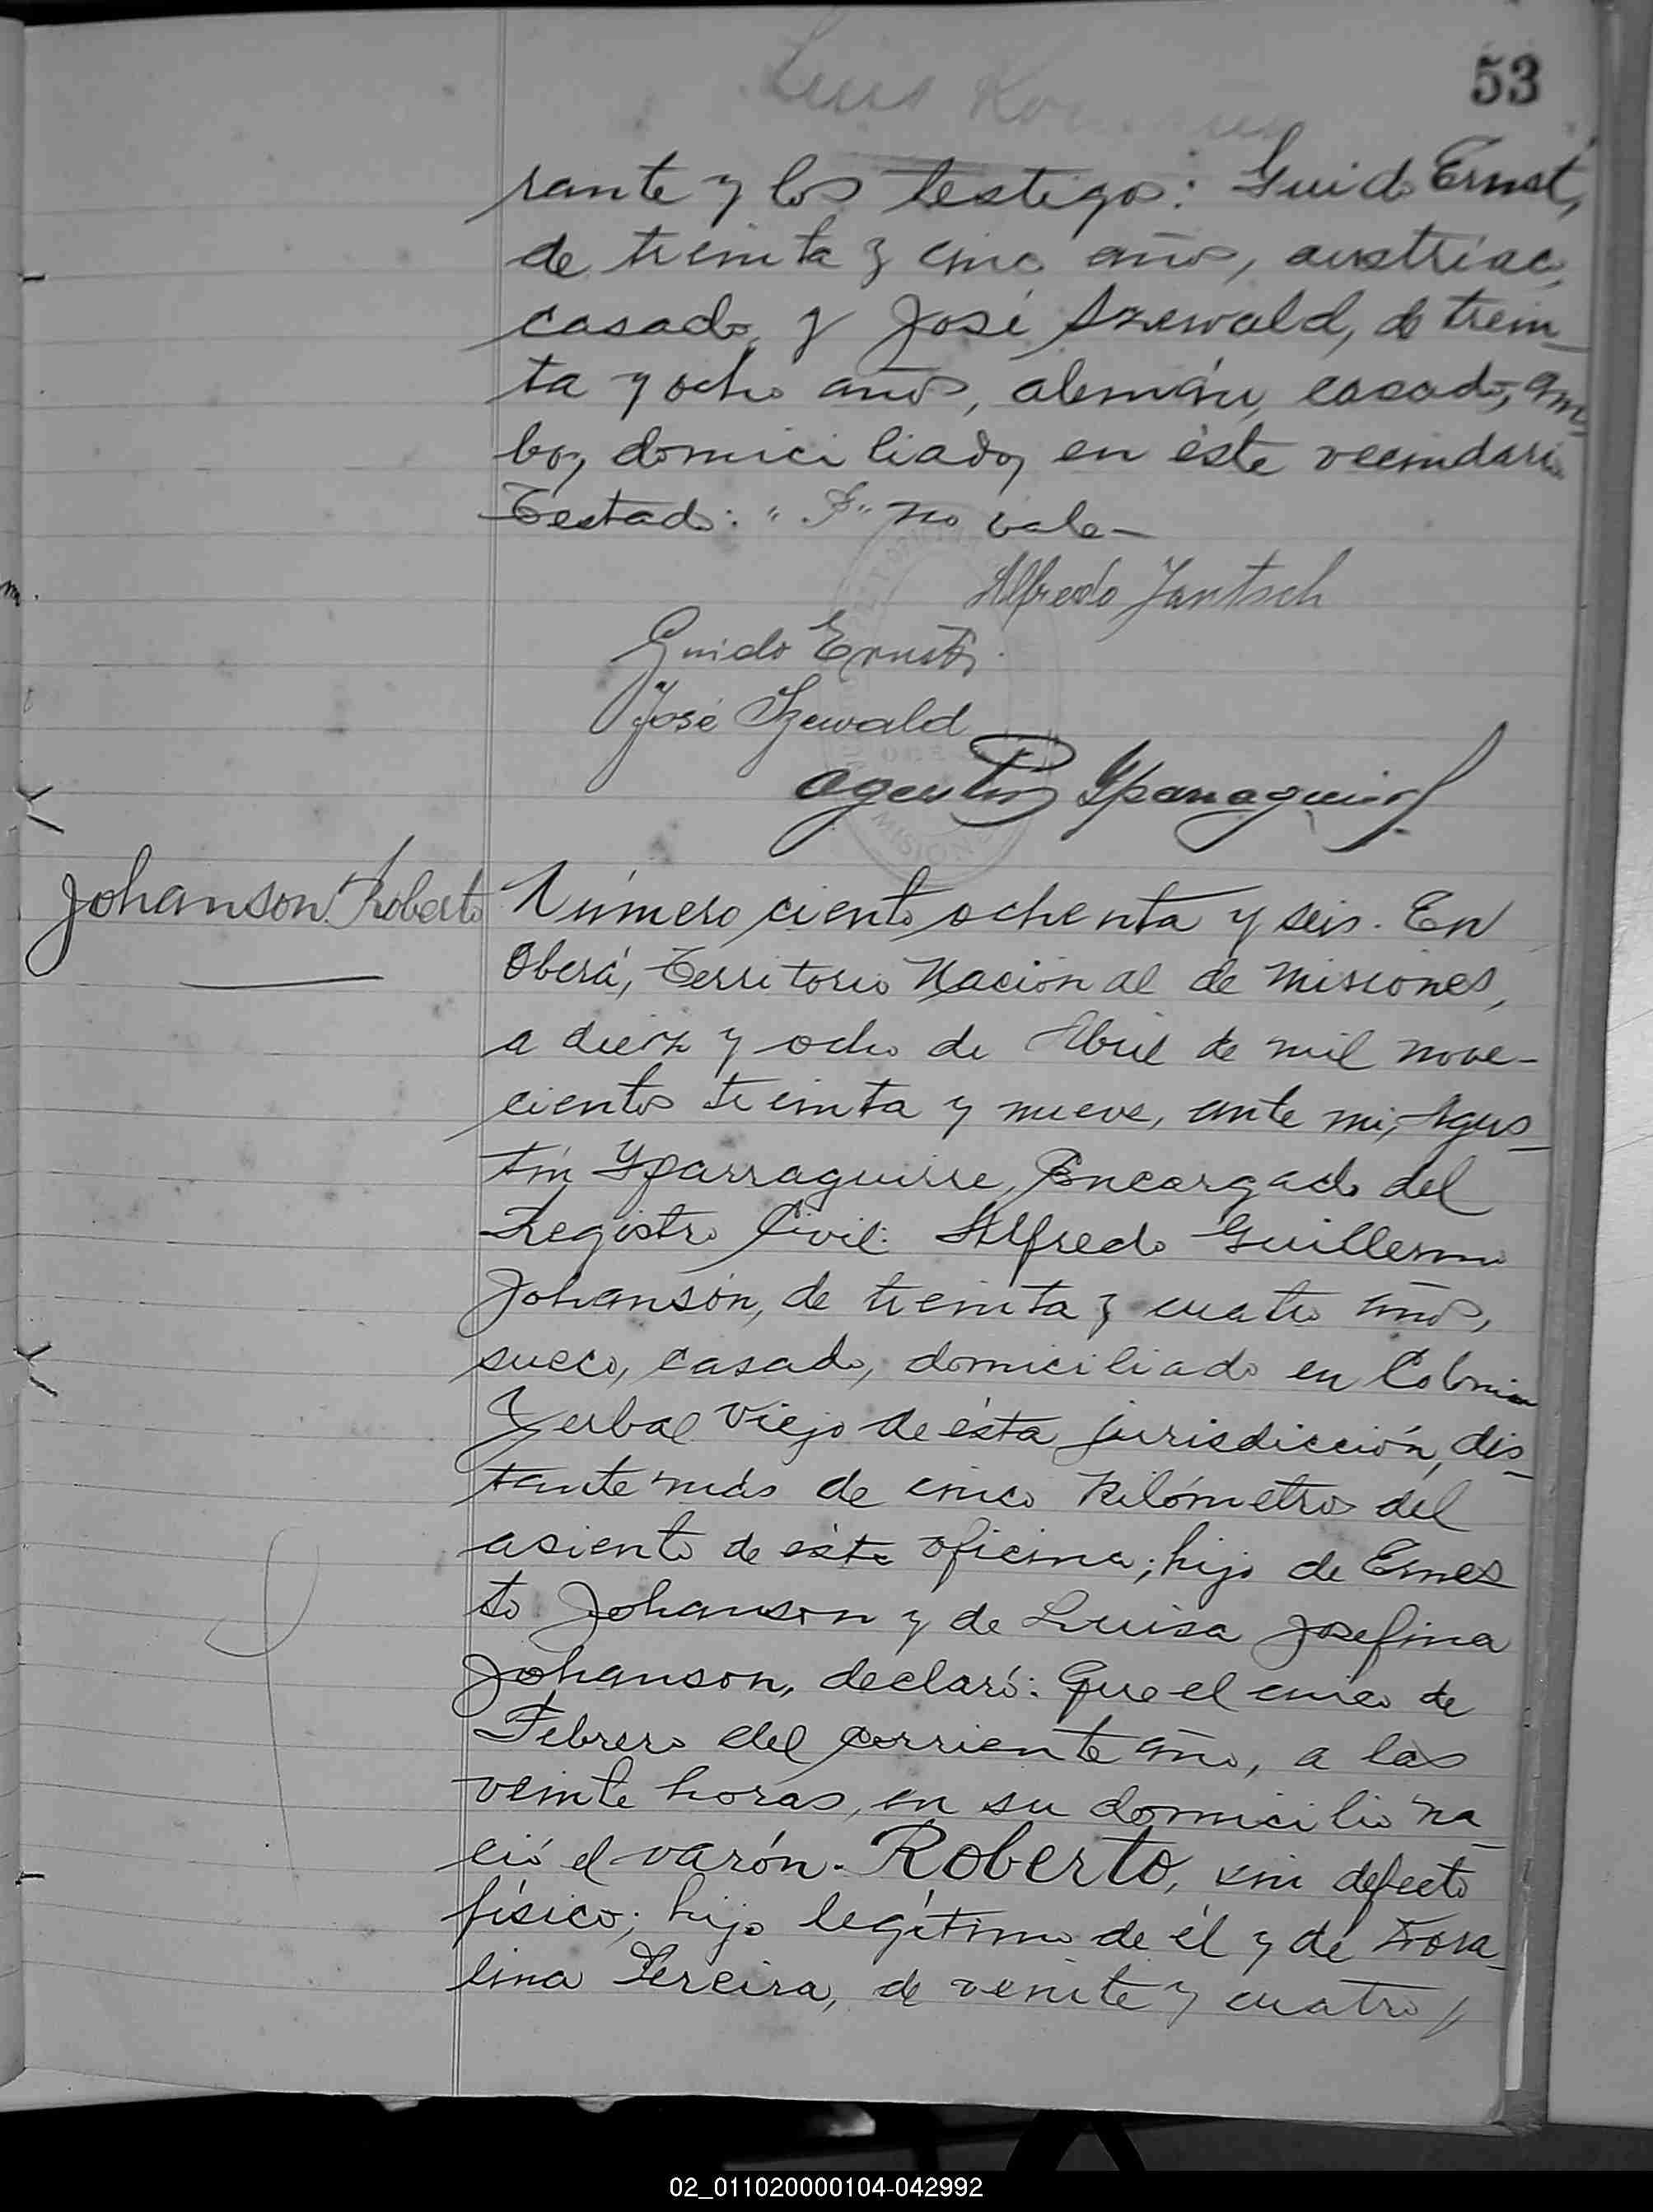 53
Luis
rante y los testigos: Guido Ernst,
de treinta y cinco años, austriaco,
casado, y José Szewald, de trein-
ta y ocho años, alemán, casado, am-
bos domiciliados en éste vecindario
Testado: "S" no vale-
Alfredo Jantsch
Guido Ernst
José Szewald
Agustín Yparraguirre
MISIONES
Johanson Roberto
Número ciento ochenta y seis. En
Oberá, Territorio Nacional de Misiones,
a diez y ocho de Abril de mil nove-
cientos treinta y nueve, ante mi, Agus-
tín Yparraguirre, Encargado del
Registro Civil: Alfredo Guillermo
Johanson, de treinta y cuatro años,
sueco, casado, domiciliado en Colonia
Yerbal Viejo de ésta jurisdicción, dis-
tante más de cinco kilómetros del
asiento de ésta oficina; hijo de Ernes-
to Johanson y de Luisa Josefina
Johanson, declaró: Que el cinco de
Febrero del corriente año, a las
veinte horas, en su domicilio na-
ció el varón. Roberto, sin defecto
físico; hijo legítimo de él y de
lina Pereira, de veinte y cuatro //
02_011020000104-042992